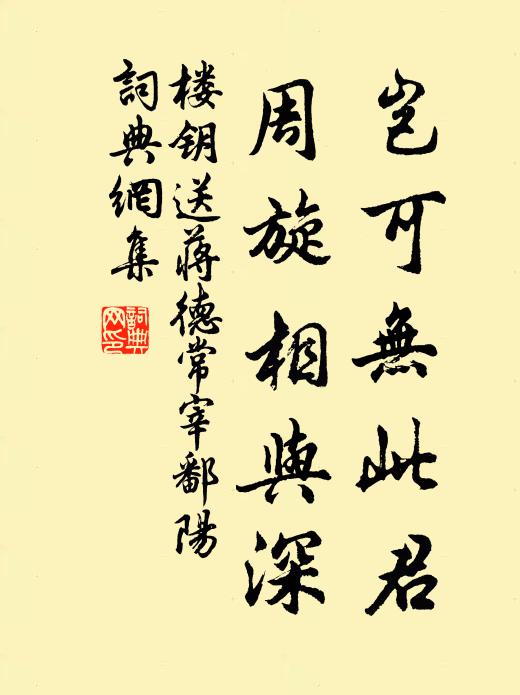 岂可無此君
周旋相與深
楼钥送蒋德常宰鄱陽
詞典網集
詞典网印